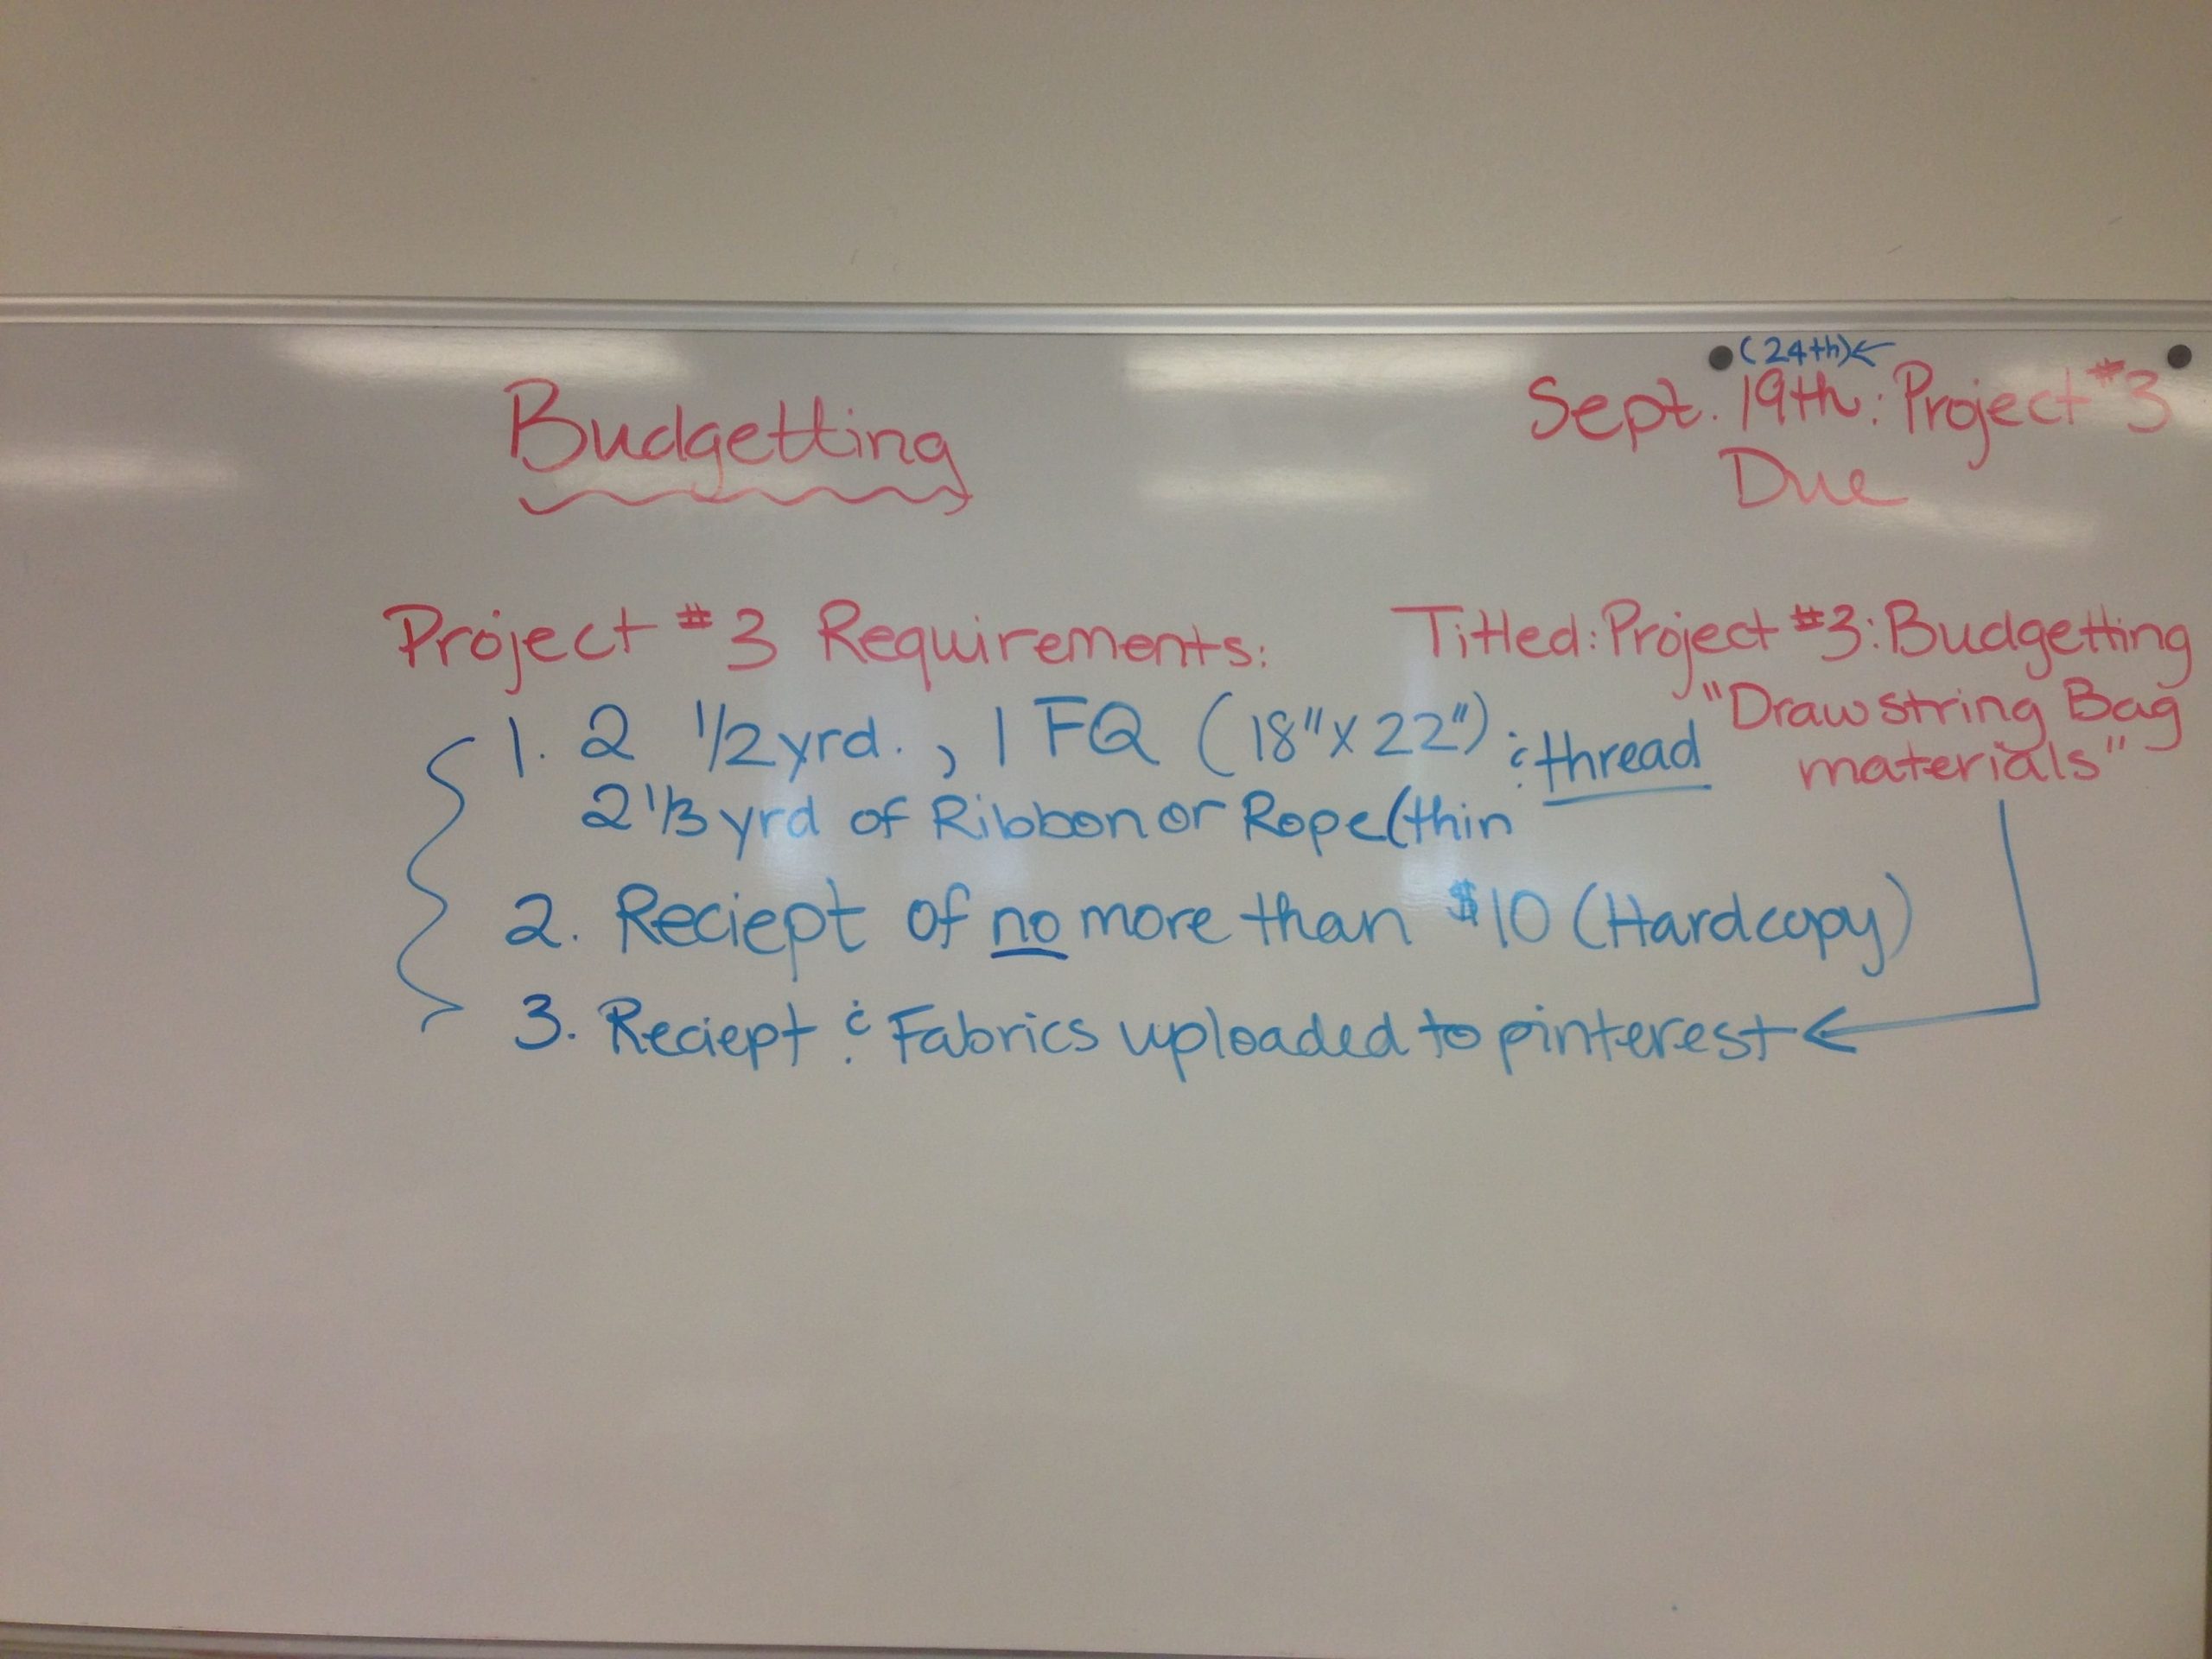 Budgetting
(24th)←
Sept. 19th: Project #3
Due
Project #3 Requirements:
1. 2 1/2 yrd., 1 FQ (18" x 22") & thread
2 1/3 yrd of Ribbon or Rope (thin
2. Reciept of no more than $10 (Hardcopy)
3. Reciept & Fabrics uploaded to pinterest ←
Titled: Project #3: Budgetting
"Drawstring Bag
materials"